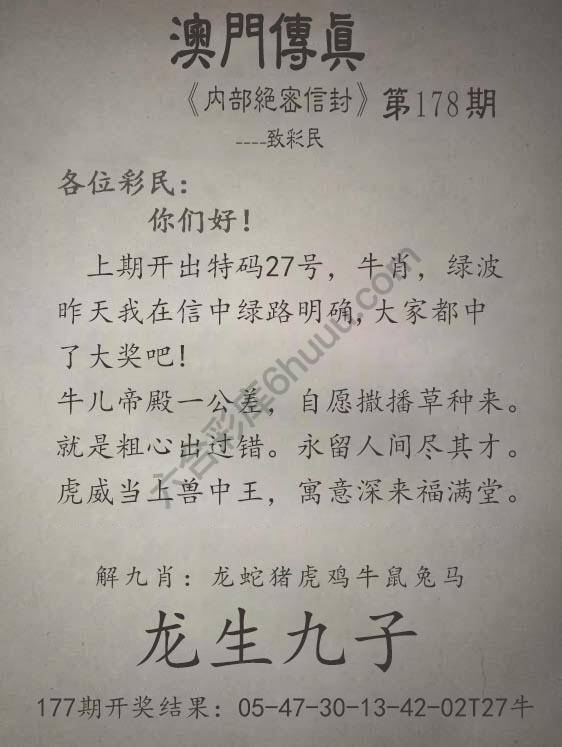 澳門傳真
《内部絕密信封》第178期
----致彩民
各位彩民:
你们好!
上期开出特码27号, 牛肖, 绿波
昨天我在信中绿路明确, 大家都中
了大奖吧!
牛儿帝殿一公差, 自愿撒播草种来。
就是粗心出过错。永留人间尽其才。
虎威当上兽中王, 寓意深来福满堂。
解九肖: 龙蛇猪虎鸡牛鼠兔马
龙生九子
177期开奖结果: 05-47-30-13-42-02T27牛
六合彩库6huuu.com